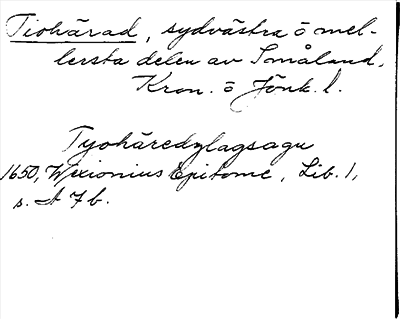 Tiohärad, sydvästra o mel-
lersta delen av Småland,
Kron. o Jönk. l.
Tyohäredzlagsagu
1650, Wexionius Epitome, Lib. 1,
s. A 7 b.